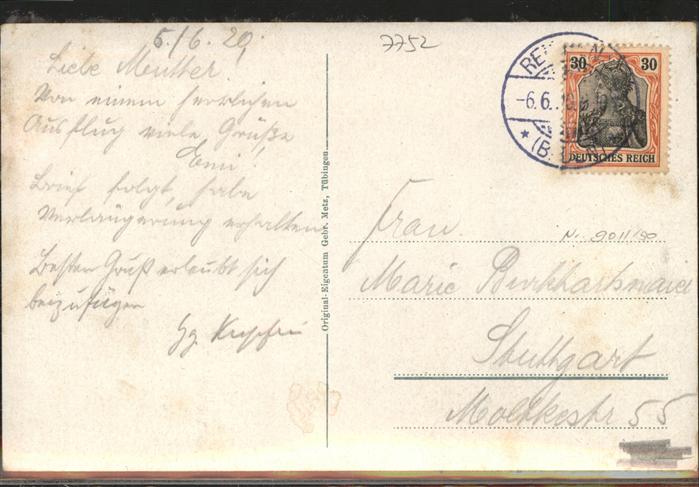 5./6. 20.
7752
Liebe Mutter!
Von einem herrlichen
Ausflug viele Grüße
Emi!
Brief folgt, habe
Verlängerung erhalten
Besten Gruß erlaubt sich
beizufügen
Original-Eigentum Gebr. Metz, Tübingen
-6.6.
(B.
30 30
DEUTSCHES REICH
Frau
N. 9011/90
Marie
Stuttgart
Moltkestr 55